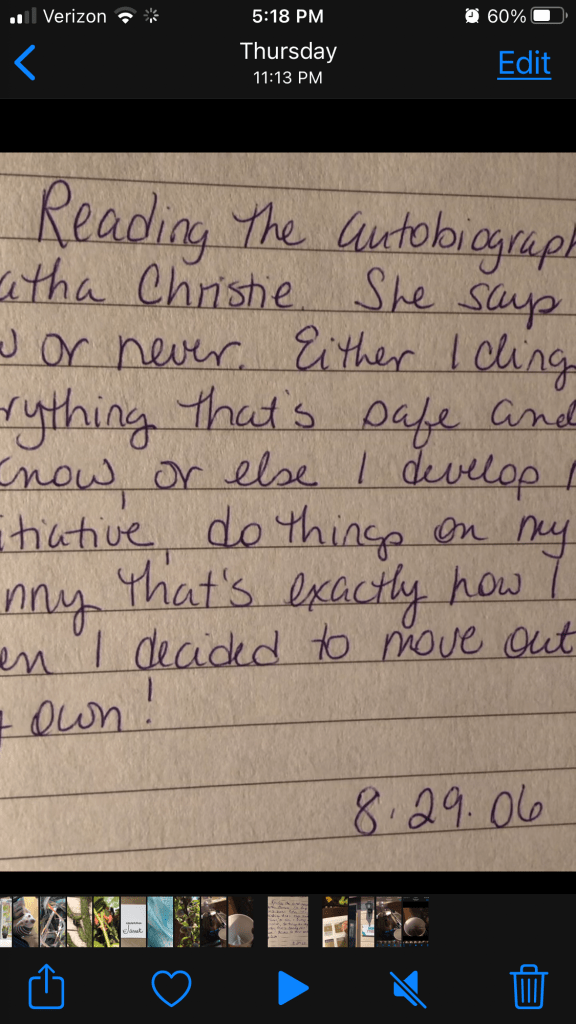 Verizon
5:18 PM
60%
Thursday
11:13 PM
Edit
Reading the autobiograph
atha Christie. She says
w or never. Either I cling
rything that's safe and
know, or else I develop
itiative, do things on my
nny that's exactly how I
en I decided to move out
own!
8.29.06